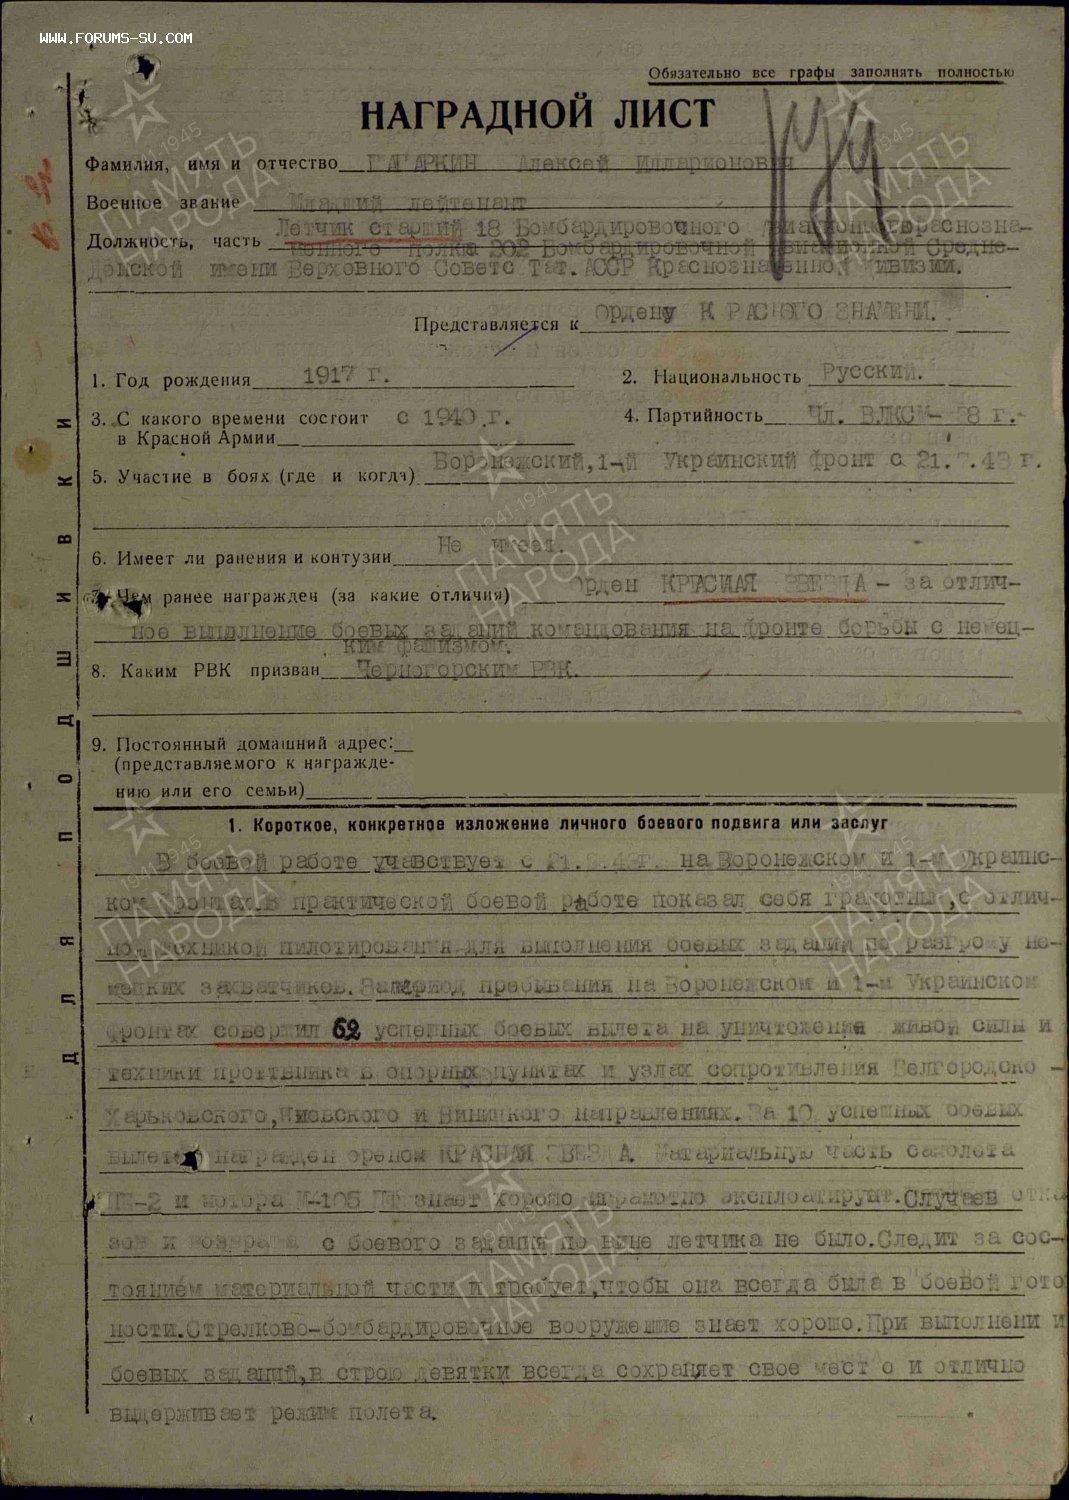 WWW.FORUMS-SU.COM
Обязательно все графы заполнять полностью
НАГРАДНОЙ ЛИСТ
Фамилия, имя и отчество Алексей Илларионович
Военное звание Младший лейтенант
Должность, часть Летчик старший 18 Бомбардировочного Авиационного Краснозна-
менного полка 202 Бомбардировочной Авиационной Средне-
Донской имени Верховного Совета Тат. АССР Краснознаменной дивизии.
Представляется к Ордену КРАСНОГО ЗНАМЕНИ.
1. Год рождения 1917 г.
2. Национальность Русский.
3. С какого времени состоит в Красной Армии с 1940 г.
4. Партийность Чл. ВЛКСМ-
5. Участие в боях (где и когда) Воронежский, 1-й Украинский фронт с 21. .43 г.
6. Имеет ли ранения и контузии Не имеет.
7. Чем ранее награжден (за какие отличия) Орден КРАСНАЯ ЗВЕЗДА - за отлич-
ное выполнение боевых заданий командования на фронте борьбы с немец-
ким фашизмом.
8. Каким РВК призван Черногорским РВК.
9. Постоянный домашний адрес:
(представляемого к награжде-
нию или его семьи)
ДЛЯ ПОДШИВКИ
1. Короткое, конкретное изложение личного боевого подвига или заслуг
В боевой работе учавствует с 21. .43г. на Воронежском и 1-м Украинс-
ком фронтах. В практической боевой работе показал себя грамотным, с отлич-
ной техникой пилотирования для выполнения боевых заданий по разгрому не-
мецких захватчиков. За период пребывания на Воронежском и 1-м Украинском
фронтах совершил 62 успешных боевых вылета на уничтожение живой силы и
техники проттвника в опорных пунктах и узлах сопротивления Белгородско -
Харьковского, Киевского и Виницкого направлениях. За 10 успешных боевых
вылетов награжден ореном КРАСНАЯ ЗВЕЗДА. Матариальную часть самолета
ПЕ-2 и мотора М-105 ПФ знает хорошо и грамотно эксплоатирует. Случаев отка
зов и возврата с боевого задания по вине летчика не было. Следит за сос-
тоянием материальной части и требует, чтобы она всегда была в боевой гото
ности. Стрелково-бомбардировочное вооружение знает хорошо. При выполнени и
боевых заданий, в строю девятки всегда сохраняет свое мест о и отлично
выдерживает режим полета.
ПАМЯТЬ НАРОДА
1941-1945